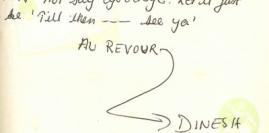 not say Goodbye. Let it just
be 'Till then --- see ya'
AU REVOUR
DINESH